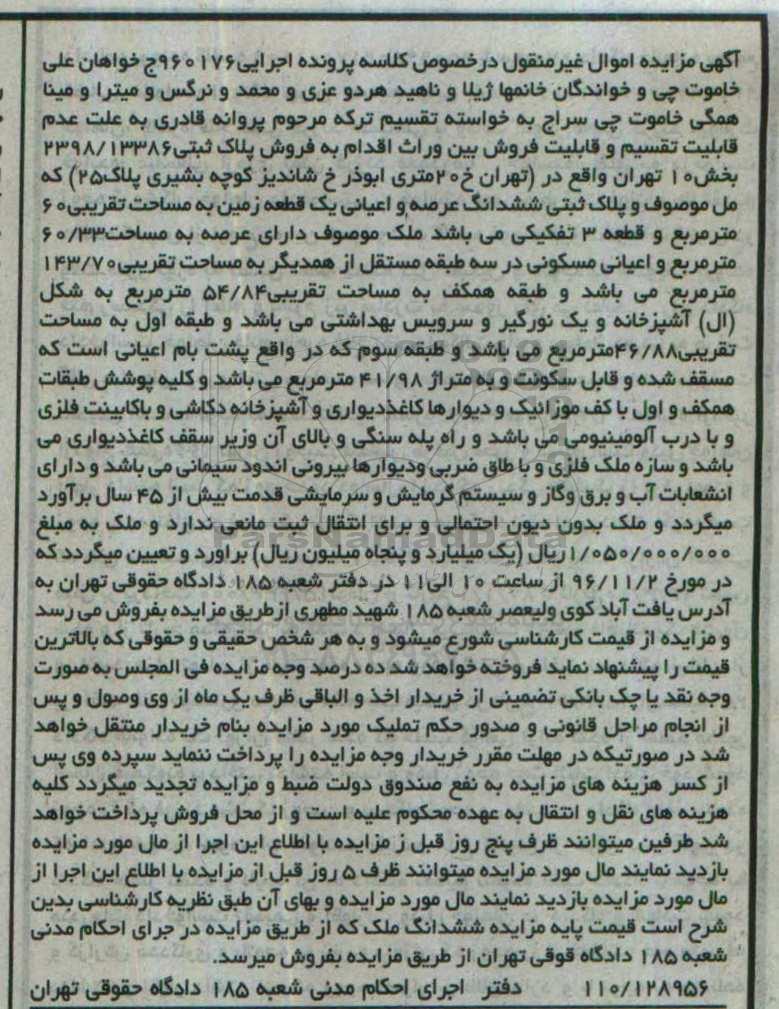 آگهی مزایده اموال غیرمنقول درخصوص کلاسه پرونده اجرایی۹۶۰۱۷۶ج خواهان علی
خاموت چی و خواندگان خانمها ژیلا و ناهید هردو عزی و محمد و نرگس و میترا و مینا
همگی خاموت چی سراج به خواسته تقسیم ترکه مرحوم پروانه قادری به علت عدم
قابلیت تقسیم و قابلیت فروش بین وراث اقدام به فروش پلاک ثبتی۲۳۹۸/۱۳۳۸۶
بخش۱۰ تهران واقع در (تهران خ۲۰متری ابوذر خ شاندیز کوچه بشیری پلاک۲۵) که
مل موصوف و پلاک ثبتی ششدانگ عرصه و اعیانی یک قطعه زمین به مساحت تقریبی۶۰
مترمربع و قطعه ۳ تفکیکی می باشد ملک موصوف دارای عرصه به مساحت۶۰/۳۳
مترمربع و اعیانی مسکونی در سه طبقه مستقل از همدیگر به مساحت تقریبی۱۴۳/۷۰
مترمربع می باشد و طبقه همکف به مساحت تقریبی۵۴/۸۴ مترمربع به شکل
(ال) آشپزخانه و یک نورگیر و سرویس بهداشتی می باشد و طبقه اول به مساحت
تقریبی۴۶/۸۸مترمربع می باشد و طبقه سوم که در واقع پشت بام اعیانی است که
مسقف شده و قابل سکونت و به متراژ ۴۱/۹۸ مترمربع می باشد و کلیه پوشش طبقات
همکف و اول با کف موزائیک و دیوارها کاغذدیواری و آشپزخانه دکاشی و باکابینت فلزی
و با درب آلومینیومی می باشد و راه پله سنگی و بالای آن وزیر سقف کاغذدیواری می
باشد و سازه ملک فلزی و با طاق ضربی ودیوارها بیرونی اندود سیمانی می باشد و دارای
انشعابات آب و برق وگاز و سیستم گرمایش و سرمایشی قدمت بیش از ۴۵ سال برآورد
میگردد و ملک بدون دیون احتمالی و برای انتقال ثبت مانعی ندارد و ملک به مبلغ
۱/۰۵۰/۰۰۰/۰۰۰ریال (یک میلیارد و پنجاه میلیون ریال) براورد و تعیین میگردد که
در مورخ ۹۶/۱۱/۲ از ساعت ۱۰ الی۱۱ در دفتر شعبه ۱۸۵ دادگاه حقوقی تهران به
آدرس یافت آباد کوی ولیعصر شعبه ۱۸۵ شهید مطهری ازطریق مزایده بفروش می رسد
و مزایده از قیمت کارشناسی شورع میشود و به هر شخص حقیقی و حقوقی که بالاترین
قیمت را پیشنهاد نماید فروخته خواهد شد ده درصد وجه مزایده فی المجلس به صورت
وجه نقد یا چک بانکی تضمینی از خریدار اخذ و الباقی ظرف یک ماه از وی وصول و پس
از انجام مراحل قانونی و صدور حکم تملیک مورد مزایده بنام خریدار منتقل خواهد
شد در صورتیکه در مهلت مقرر خریدار وجه مزایده را پرداخت ننماید سپرده وی پس
از کسر هزینه های مزایده به نفع صندوق دولت ضبط و مزایده تجدید میگردد کلیه
هزینه های نقل و انتقال به عهده محکوم علیه است و از محل فروش پرداخت خواهد
شد طرفین میتوانند ظرف پنج روز قبل ز مزایده با اطلاع این اجرا از مال مورد مزایده
بازدید نمایند مال مورد مزایده میتوانند ظرف ۵ روز قبل از مزایده با اطلاع این اجرا از
مال مورد مزایده بازدید نمایند مال مورد مزایده و بهای آن طبق نظریه کارشناسی بدین
شرح است قیمت پایه مزایده ششدانگ ملک که از طریق مزایده در جرای احکام مدنی
شعبه ۱۸۵ دادگاه قوقی تهران از طریق مزایده بفروش میرسد.
۱۱۰/۱۲۸۹۵۶ دفتر اجرای احکام مدنی شعبه ۱۸۵ دادگاه حقوقی تهران
ParsNamadData